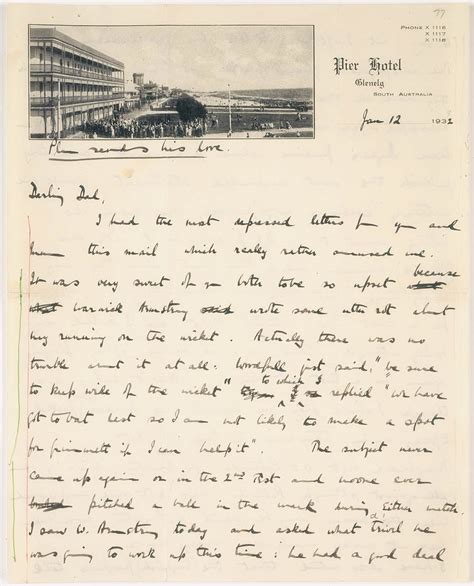 77
PHONE X 1116
X 1117
X 1118
Pier Hotel
Glenelg
SOUTH AUSTRALIA
Jan 12 1932
Plum sends his love.
Darling Dad,
I had the most depressed letters from you and
Mum this mail which really rather amused me.
because
It was very sweet of you both to be so upset
Warwick Armstrong said wrote some utter rot about
my running on the wicket. Actually there was no
trouble about it at all: Woodfull just said, "be sure
to which I
to keep wide of the wicket" replied "we have
got to bat next so I am not likely to make a spot
for Grimmett if I can help it". The subject never
came up again or in the 2nd Test and noone ever
pitched a ball in the mark during either match.
I saw W. Armstrong today and asked what trivel he
was going to work up this time: he had a good deal